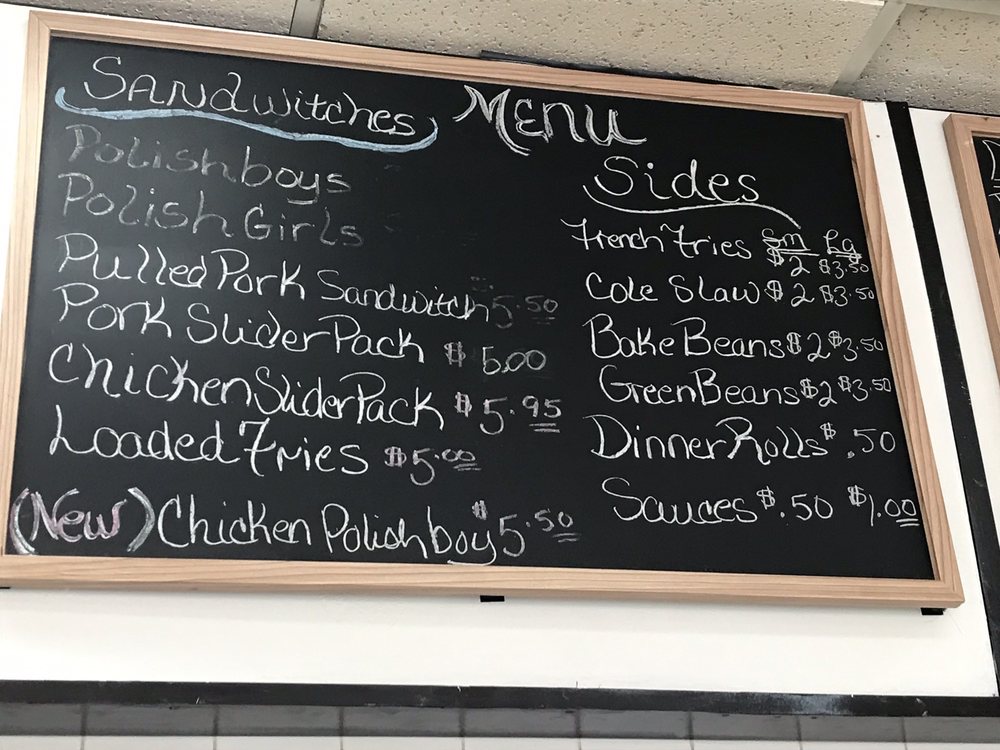 MENU
Sandwitches
Polishboys
Polish Girls
Pulled Pork Sandwitch 5.50
Pork Slider Pack $5.00
Chicken Slider Pack $5.95
Loaded Fries $5.00
(New) Chicken Polishboy $5.50
Sides
Sm Lg
French Fries $2 $3.50
Cole Slaw $2 $3.50
Bake Beans $2 $3.50
Green Beans $2 $3.50
Dinner Rolls $.50
Sauces $.50 $1.00